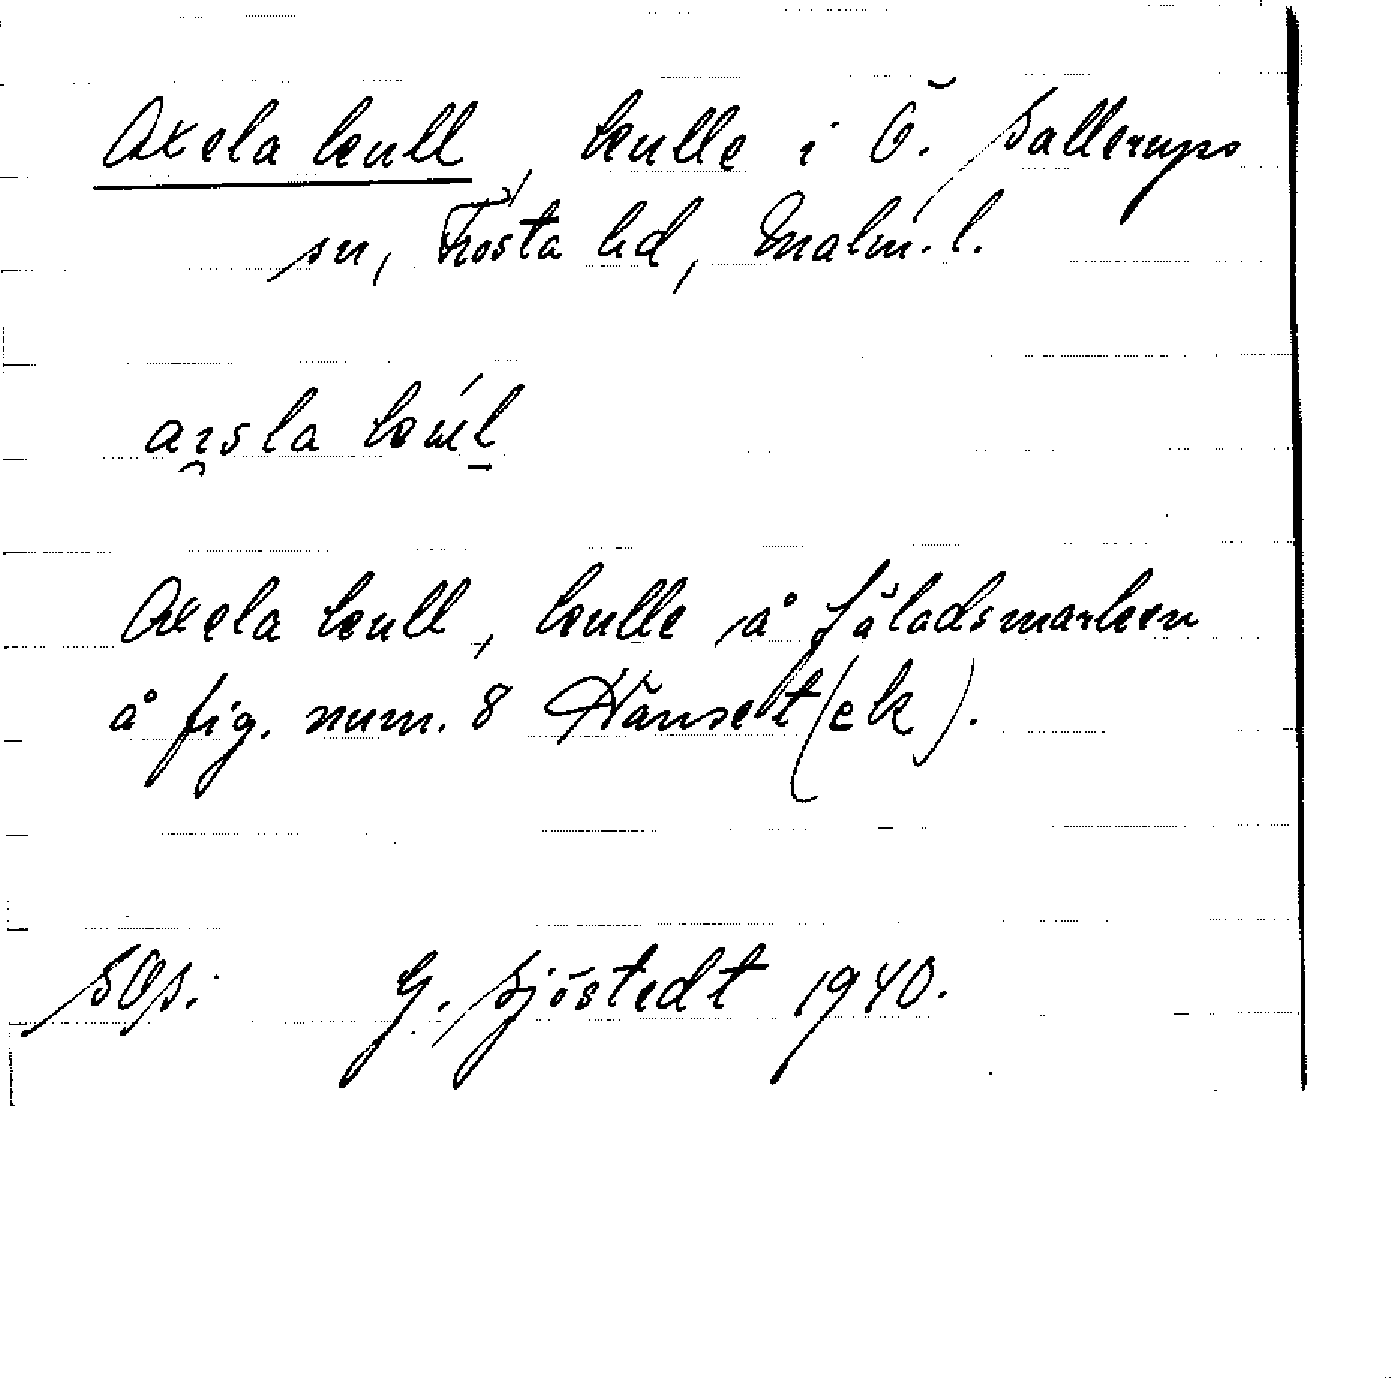 Axela kull, kulle i Ö. Sallerups
sn, Frosta hd, Malm. l.
Axela kull, kulle å fäladsmarken
å fig. num. 8 (ek).
SOS. G. Sjöstedt 1940.